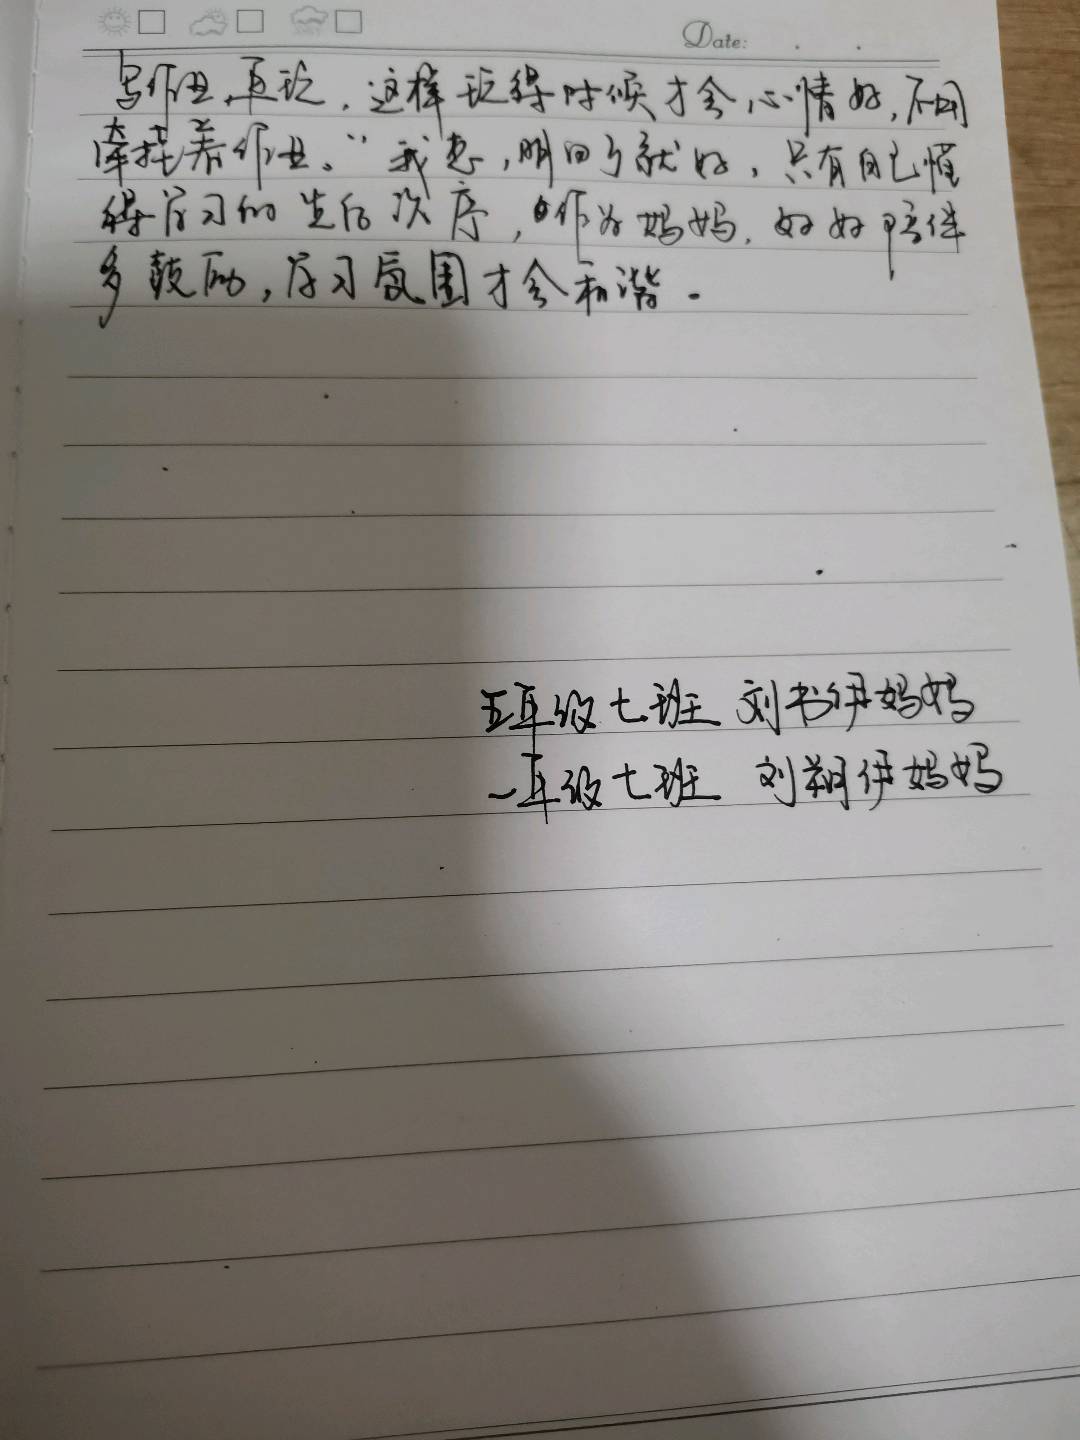 Date: . .
写作业,再玩,这样玩得时候才会心情好,不用
牵挂着作业。"我想,明白了就好,只有自己懂
得学习的先后次序,作为妈妈,好好陪伴
多鼓励,学习氛围才会和谐.
五年级七班 刘书伊妈妈
一年级七班 刘翔伊妈妈